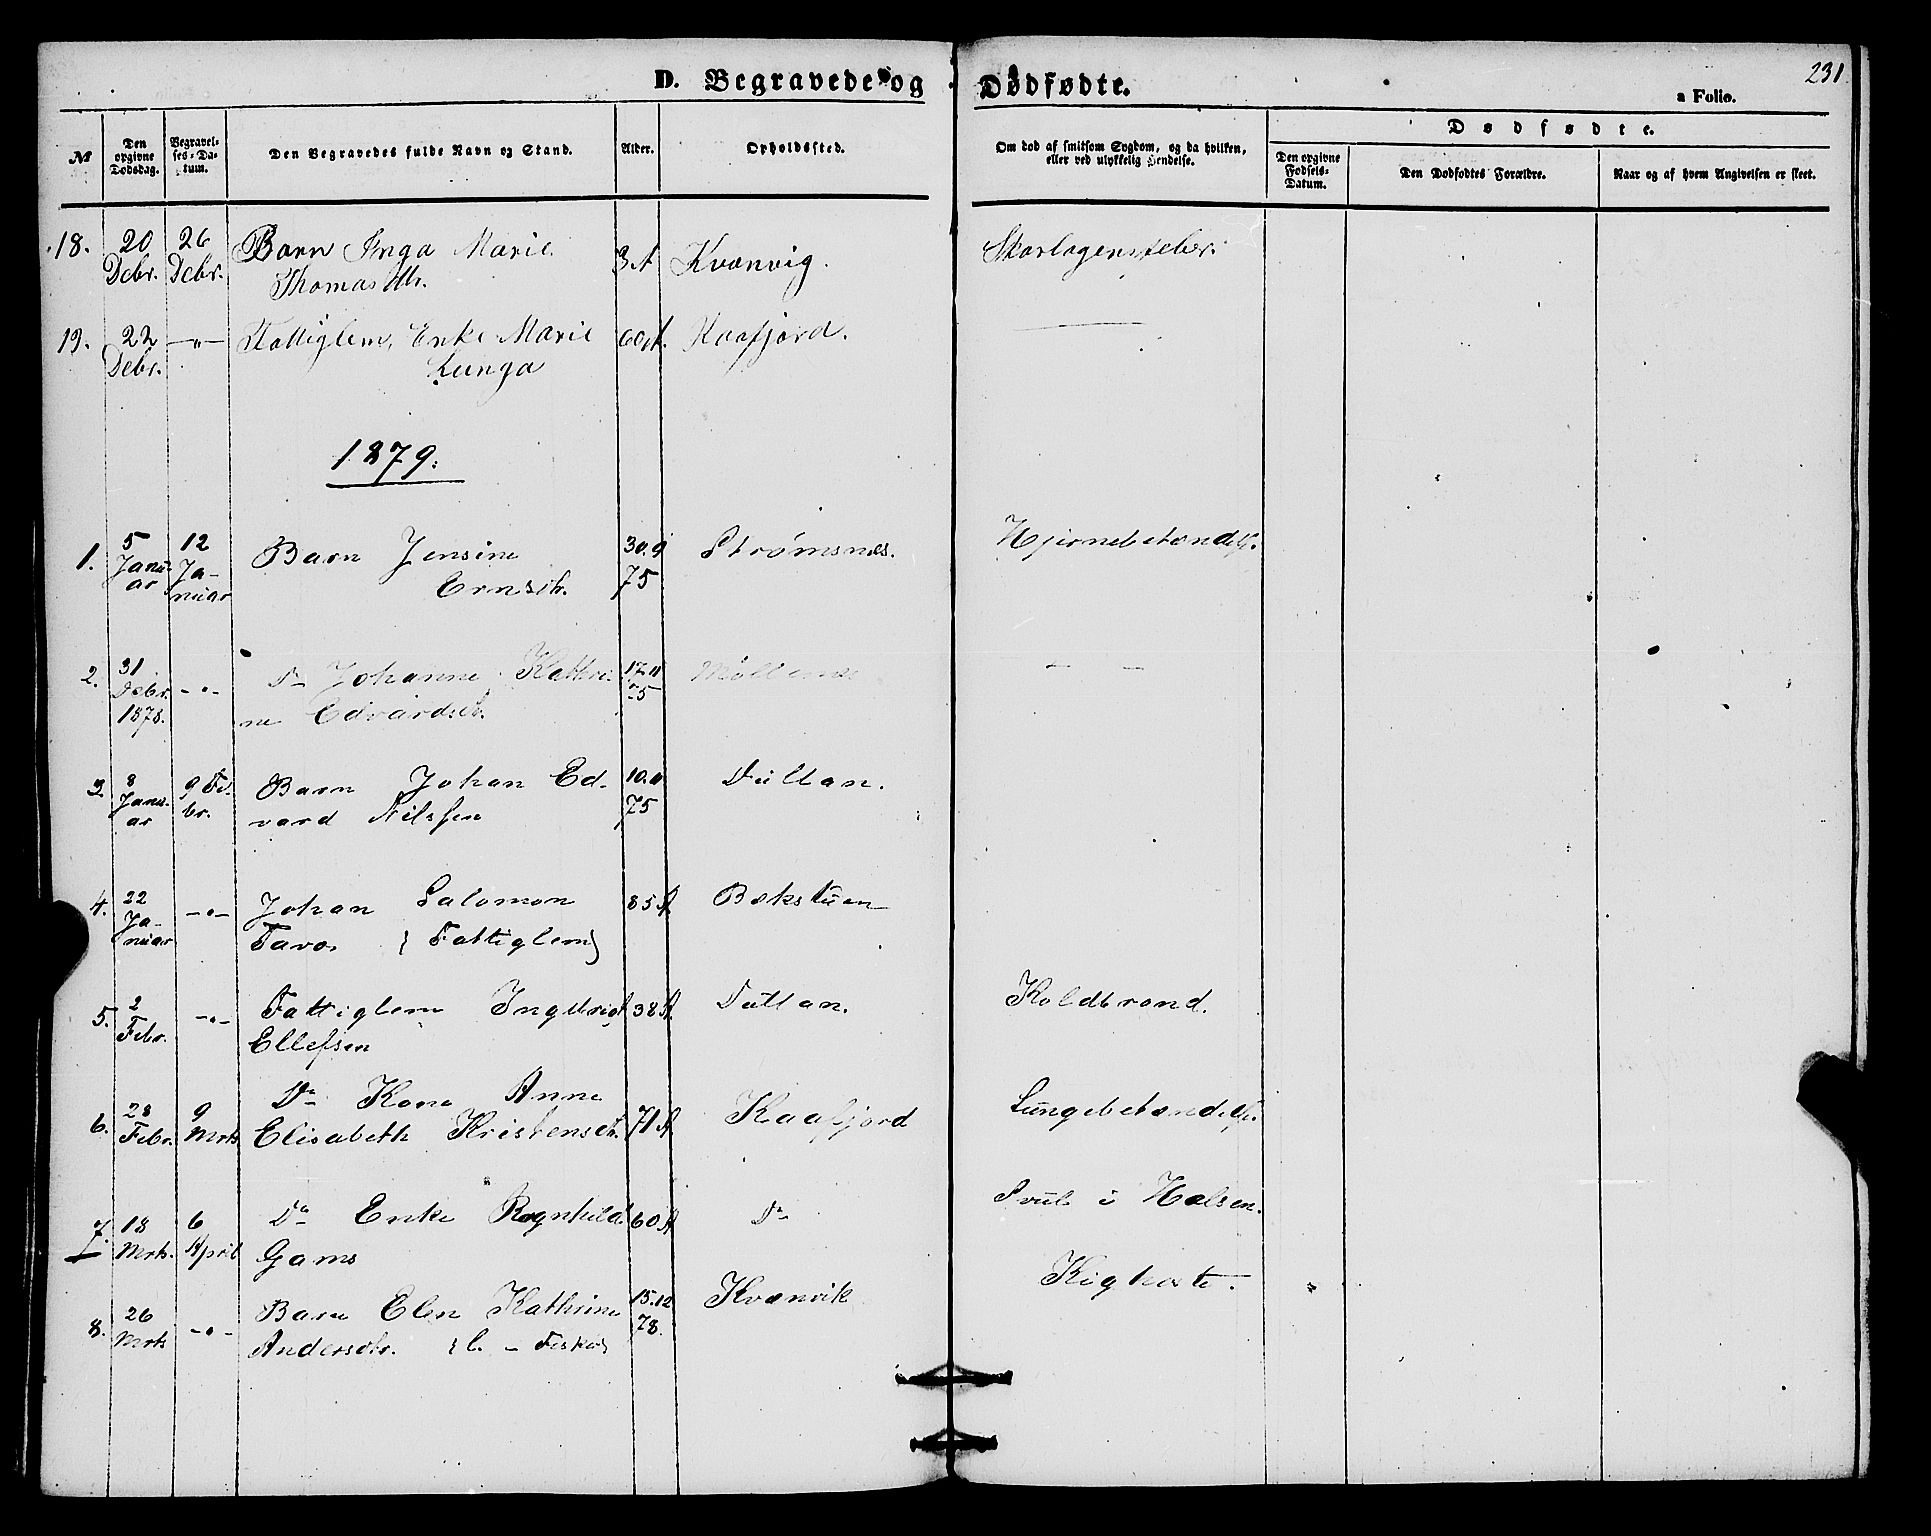 D. Begravede og Dødfødte.
231
a Folio.
№
Den opgivne Dødsdag.
Begravelses-Datum.
Den Begravedes fulde Navn og Stand.
Alder.
Opholdssted.
Om død af smitsom Sygdom, og da hvilken,
eller ved ulykkelig Hendelse.
Dødfødte.
Den opgivne Fødsels-Datum.
Den Dødfødtes Forældre.
Naar og af hvem Angivelsen er skeet.
18. 20 26 Barn Inga Marie 3 A Kvænvig. Skarlagensfeber.
Debr. Debr. Thomasdtr.
19. 22 -"- Fattiglem, Enke Marie 60 A. Kaafjord. —
Debr. Kunga
1879.
1. 5 12 Barn Jensine 30.9 Strømsnæs. Hjernebetændelse.
Januar Januar Ernsdtr. 75
2. 31 -"- Do Johanne Kathri- 17.11 - -
Debr. 1878. ne Edvardsdtr. 75
3. 8 9 Fe- Barn Johan Ed- 10.11 Tullan.
Januar br. vard Nilssen 75
4. 22 -"- Johan Salomon 85 A. Bokstuen
Januar (Fattiglem)
5. 2 -"- Fattiglem 38 A. Tullan. Koldbrand.
Febr. Ellefsen
6. 28 9 Do Kone Anne 71 A. Kaafjord Lungebetændelse.
Febr. Mrts Elisabeth Kristensdtr.
7. 18 6 Do Enke Ragnhild 60 A. Do i Halsen.
Mrts. April Gams
8. 26 -"- Barn Elen Kathrine 15.12 Kvænvik Kighoste.
Mrts Andersdtr. 78.